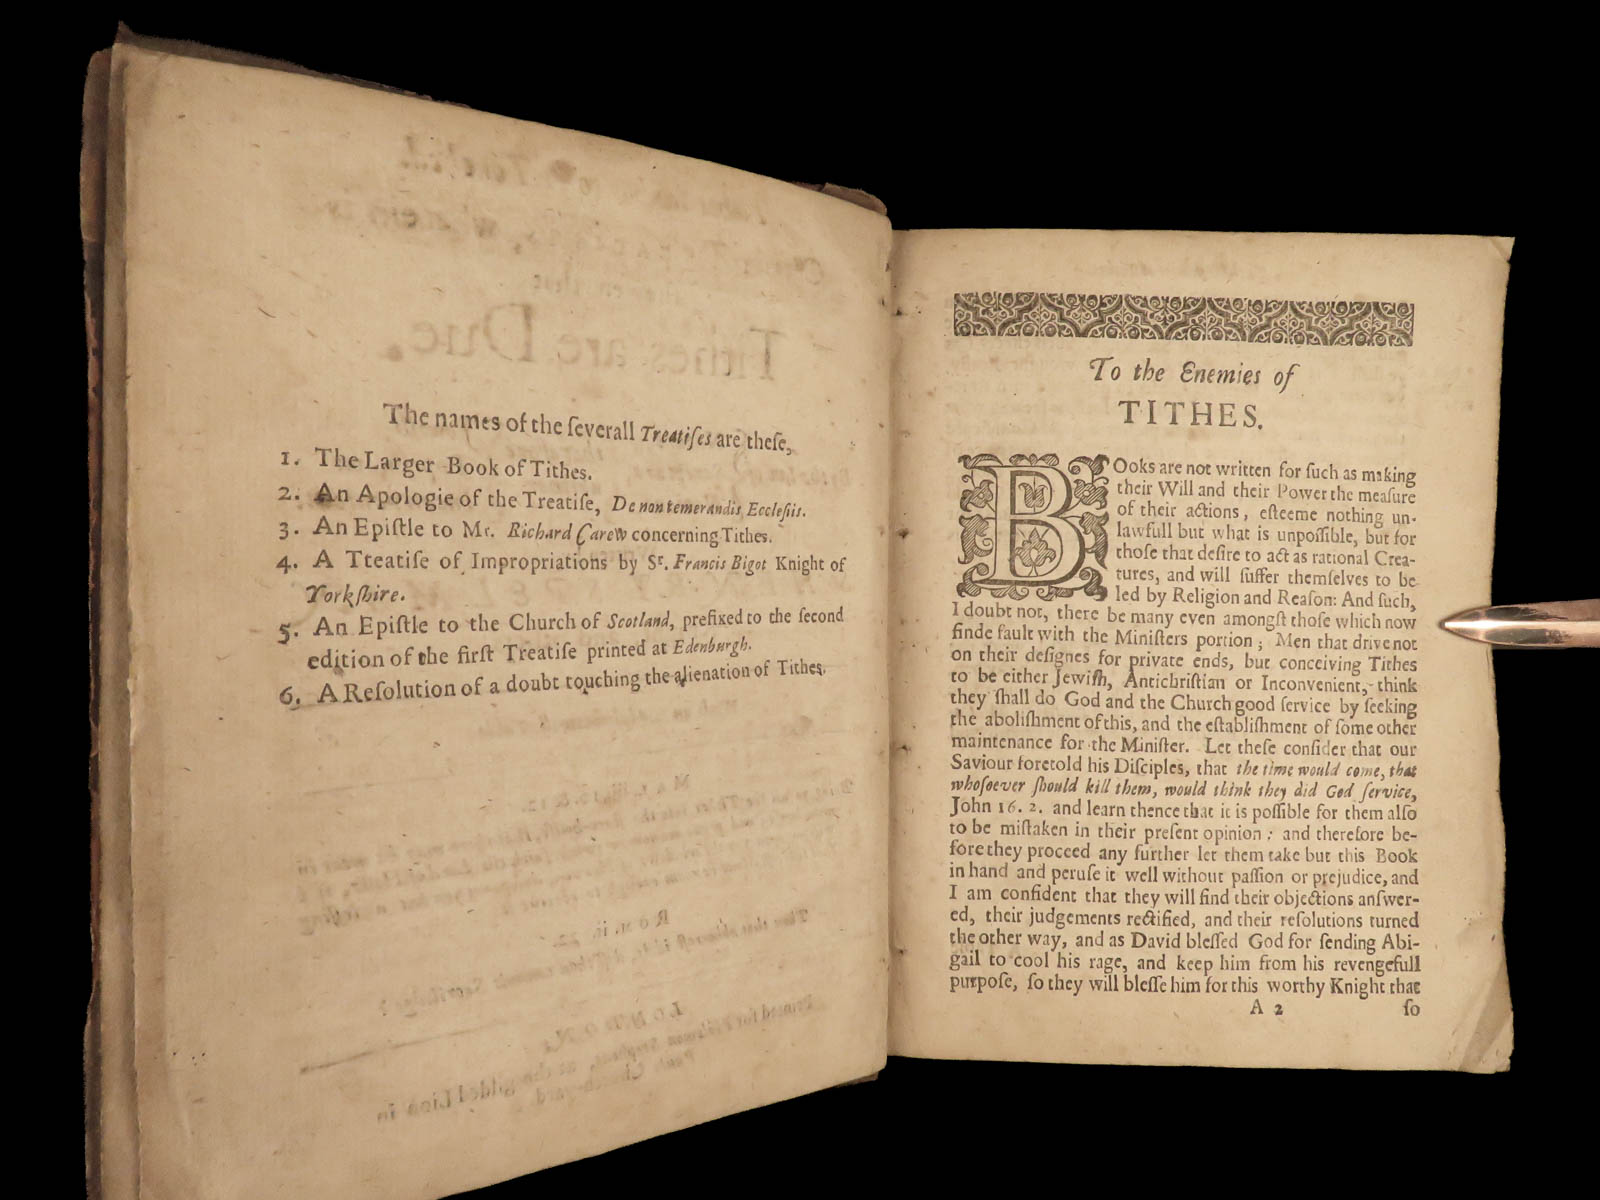 The names of the ſeverall Treatiſes are theſe,
1. The Larger Book of Tithes.
2. An Apologie of the Treatiſe, De non temerandis Eccleſiis.
3. An Epiſtle to Mr. Richard Carew concerning Tithes.
4. A Tteatiſe of Impropriations by Sr. Francis Bigot Knight of
Yorkſhire.
5. An Epiſtle to the Church of Scotland, prefixed to the ſecond
edition of the firſt Treatiſe printed at Edenburgh.
6. A Reſolution of a doubt touching the alienation of Tithes.
To the Enemies of
TITHES.
BOoks are not written for ſuch as making
their Will and their Power the meaſure
of their actions, eſteeme nothing un-
lawfull but what is unpoſſible, but for
thoſe that deſire to act as rational Crea-
tures, and will ſuffer themſelves to be
led by Religion and Reaſon: And ſuch,
I doubt not, there be many even amongſt thoſe which now
finde fault with the Miniſters portion; Men that drive not
on their deſignes for private ends, but conceiving Tithes
to be either Jewiſh, Antichriſtian or Inconvenient, think
they ſhall do God and the Church good ſervice by ſeeking
the aboliſhment of this, and the eſtabliſhment of ſome other
maintenance for the Miniſter. Let theſe conſider that our
Saviour foretold his Diſciples, that the time would come, that
whoſoever ſhould kill them, would think they did God ſervice,
John 16. 2. and learn thence that it is poſſible for them alſo
to be miſtaken in their preſent opinion: and therefore be-
fore they proceed any further let them take but this Book
in hand and peruſe it well without paſſion or prejudice, and
I am confident that they will find their objections anſwer-
ed, their judgements rectified, and their reſolutions turned
the other way, and as David bleſſed God for ſending Abi-
gail to cool his rage, and keep him from his revengefull
purpoſe, ſo they will bleſſe him for this worthy Knight that
A 2 ſo